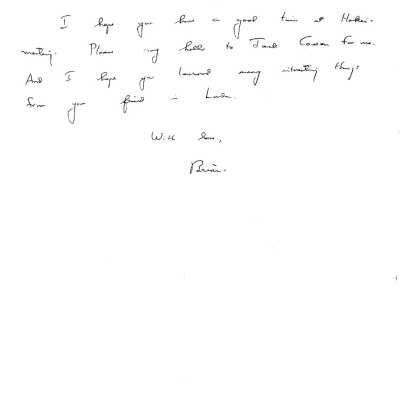 I hope you have a good time at
meeting. Please say hello to Jack Cowan for me.
And I hope you learned many interesting things
from your friend in London.
With love,
Brian.